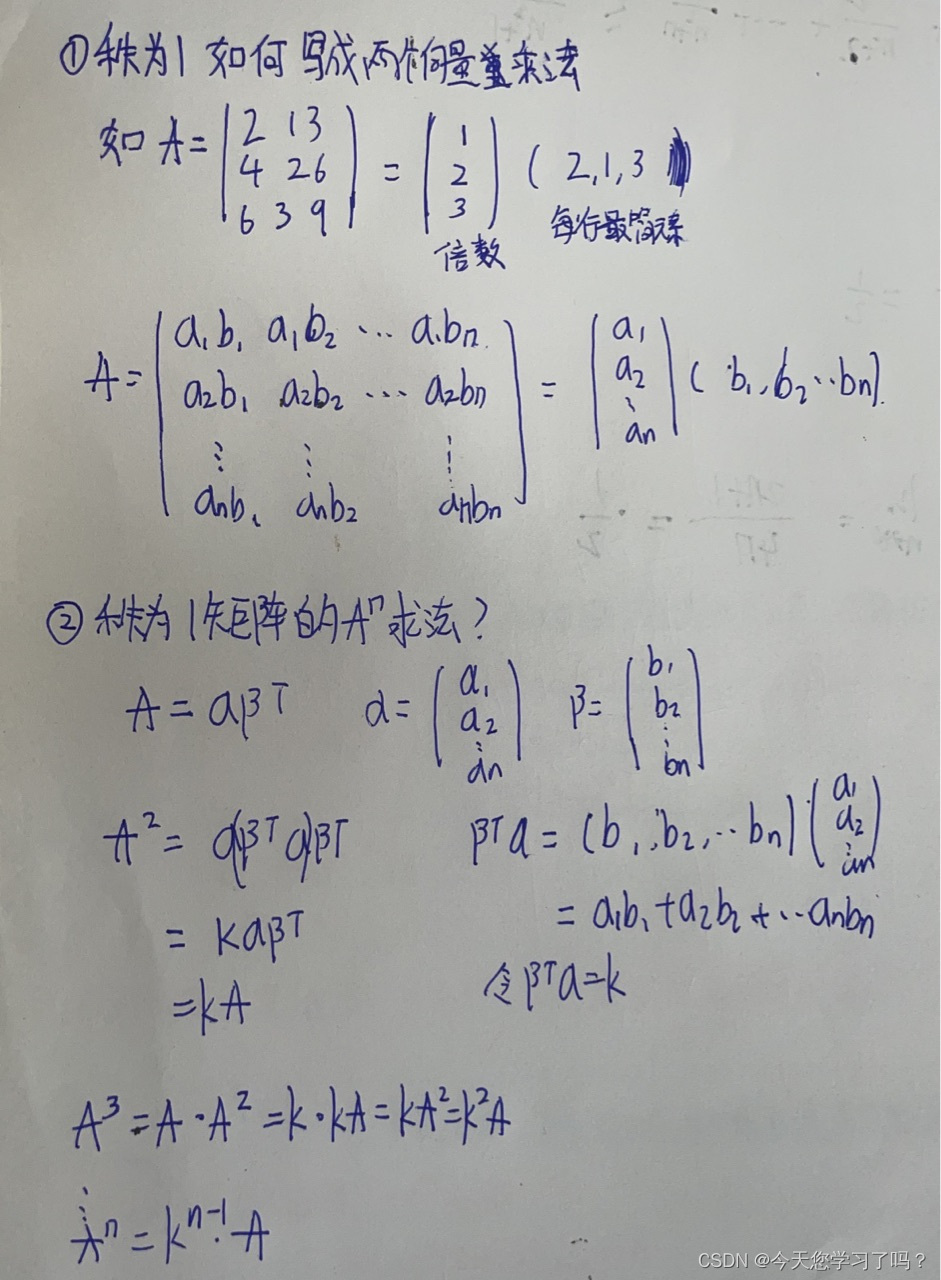 ①秩为1 如何写成两个向量乘法
如 A= (2 1 3
4 2 6
6 3 9) = (1
2
3) ( 2,1,3
倍数 每行最简元素
A= (a₁b₁ a₁b₂ ··· a₁bₙ
a₂b₁ a₂b₂ ··· a₂bₙ
⋮ ⋮ ⋮
aₙb₁ aₙb₂ aₙbₙ) = (a₁
a₂
⋮
aₙ) ( b₁, b₂ ·· bₙ).
②秩为1矩阵的Aⁿ求法?
A = αβᵀ α= (a₁
a₂
⋮
aₙ) β= (b₁
b₂
⋮
bₙ)
A² = α(βᵀα)βᵀ βᵀα = (b₁, b₂, ·· bₙ) (a₁
a₂
⋮
aₙ)
= kαβᵀ = a₁b₁+a₂b₂+··aₙbₙ
=kA 令βᵀα=k
A³=A·A²=k·kA=kA²=k²A
⋮
Aⁿ=kⁿ⁻¹·A
CSDN @今天您学习了吗?